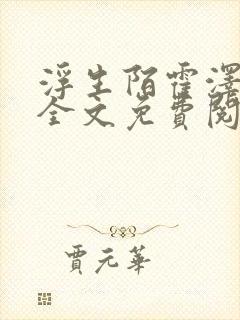 浮生陌霍澤
全文免費閱
賈元華